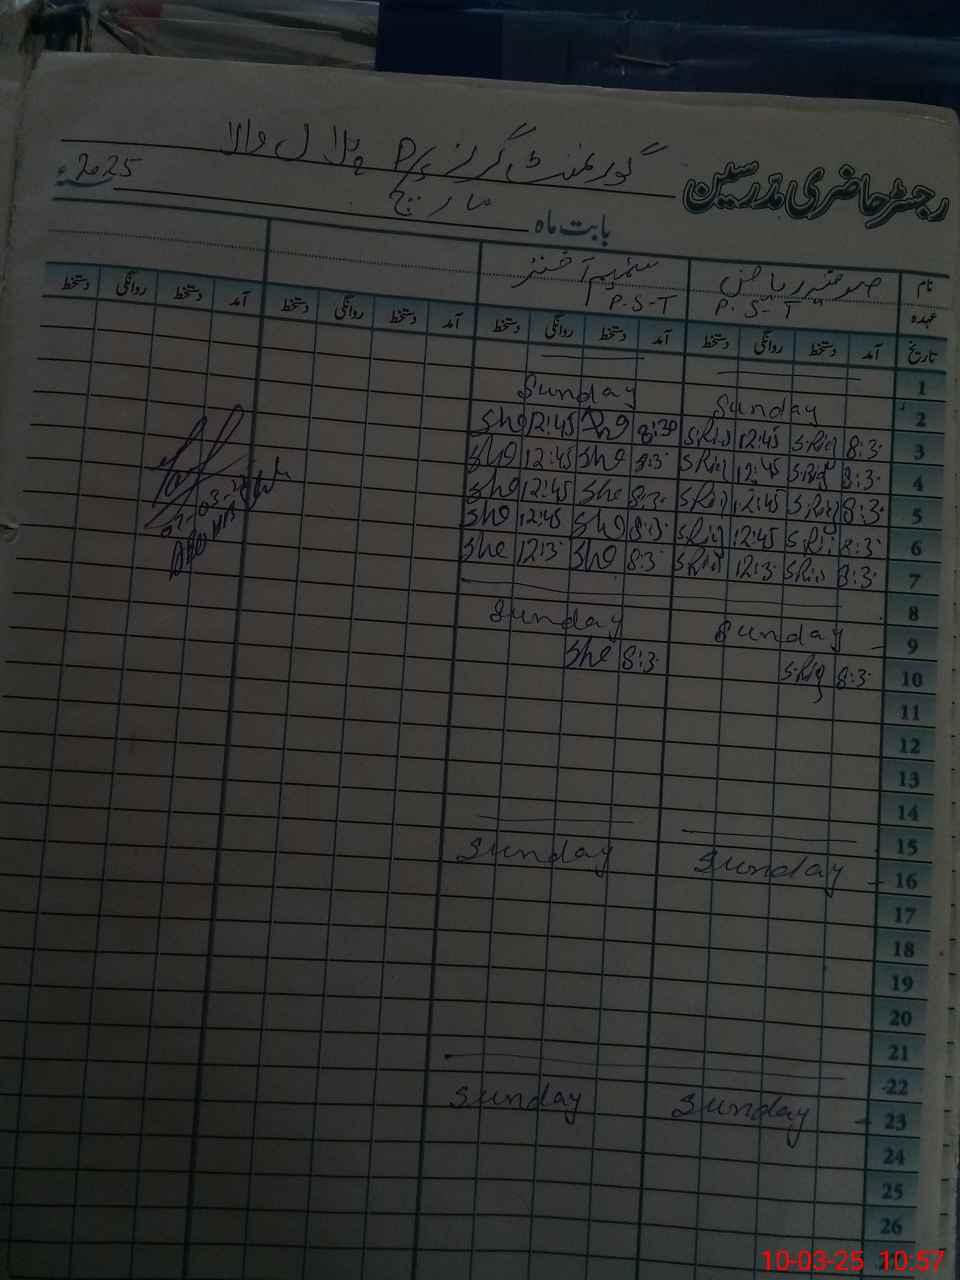 رجسٹر حاضری مدرسین گورنمنٹ گرلز P/S والا
بابت ماہ مارچ 2025ء
نام ریاض شمیم اختر
عہدہ P.S.T P.S.T
تاریخ آمد دستخط روانگی دستخط آمد دستخط روانگی دستخط آمد دستخط روانگی دستخط آمد دستخط روانگی دستخط
1
2 Sunday Sunday
3 8:3 S.Riq 12:45 S.Riq 8:30 She 12:45 She
4 8:3 S.Riq 12:45 S.Riq 8:3 She 12:45 She
5 8:3 S.Riq 12:45 S.Riq 8:3 She 12:45 She
6 8:3 S.Riq 12:45 S.Riq 8:3 She 12:45 She
7 8:3 S.Riq 12:3 S.Riq 8:3 She 12:3 She
8
9 Sunday Sunday
10 8:3 S.Riq 8:3 She
11
12
13
14
15
16 Sunday Sunday
17
18
19
20
21
22
23 Sunday Sunday
24
25
26
10-03-25 10:57